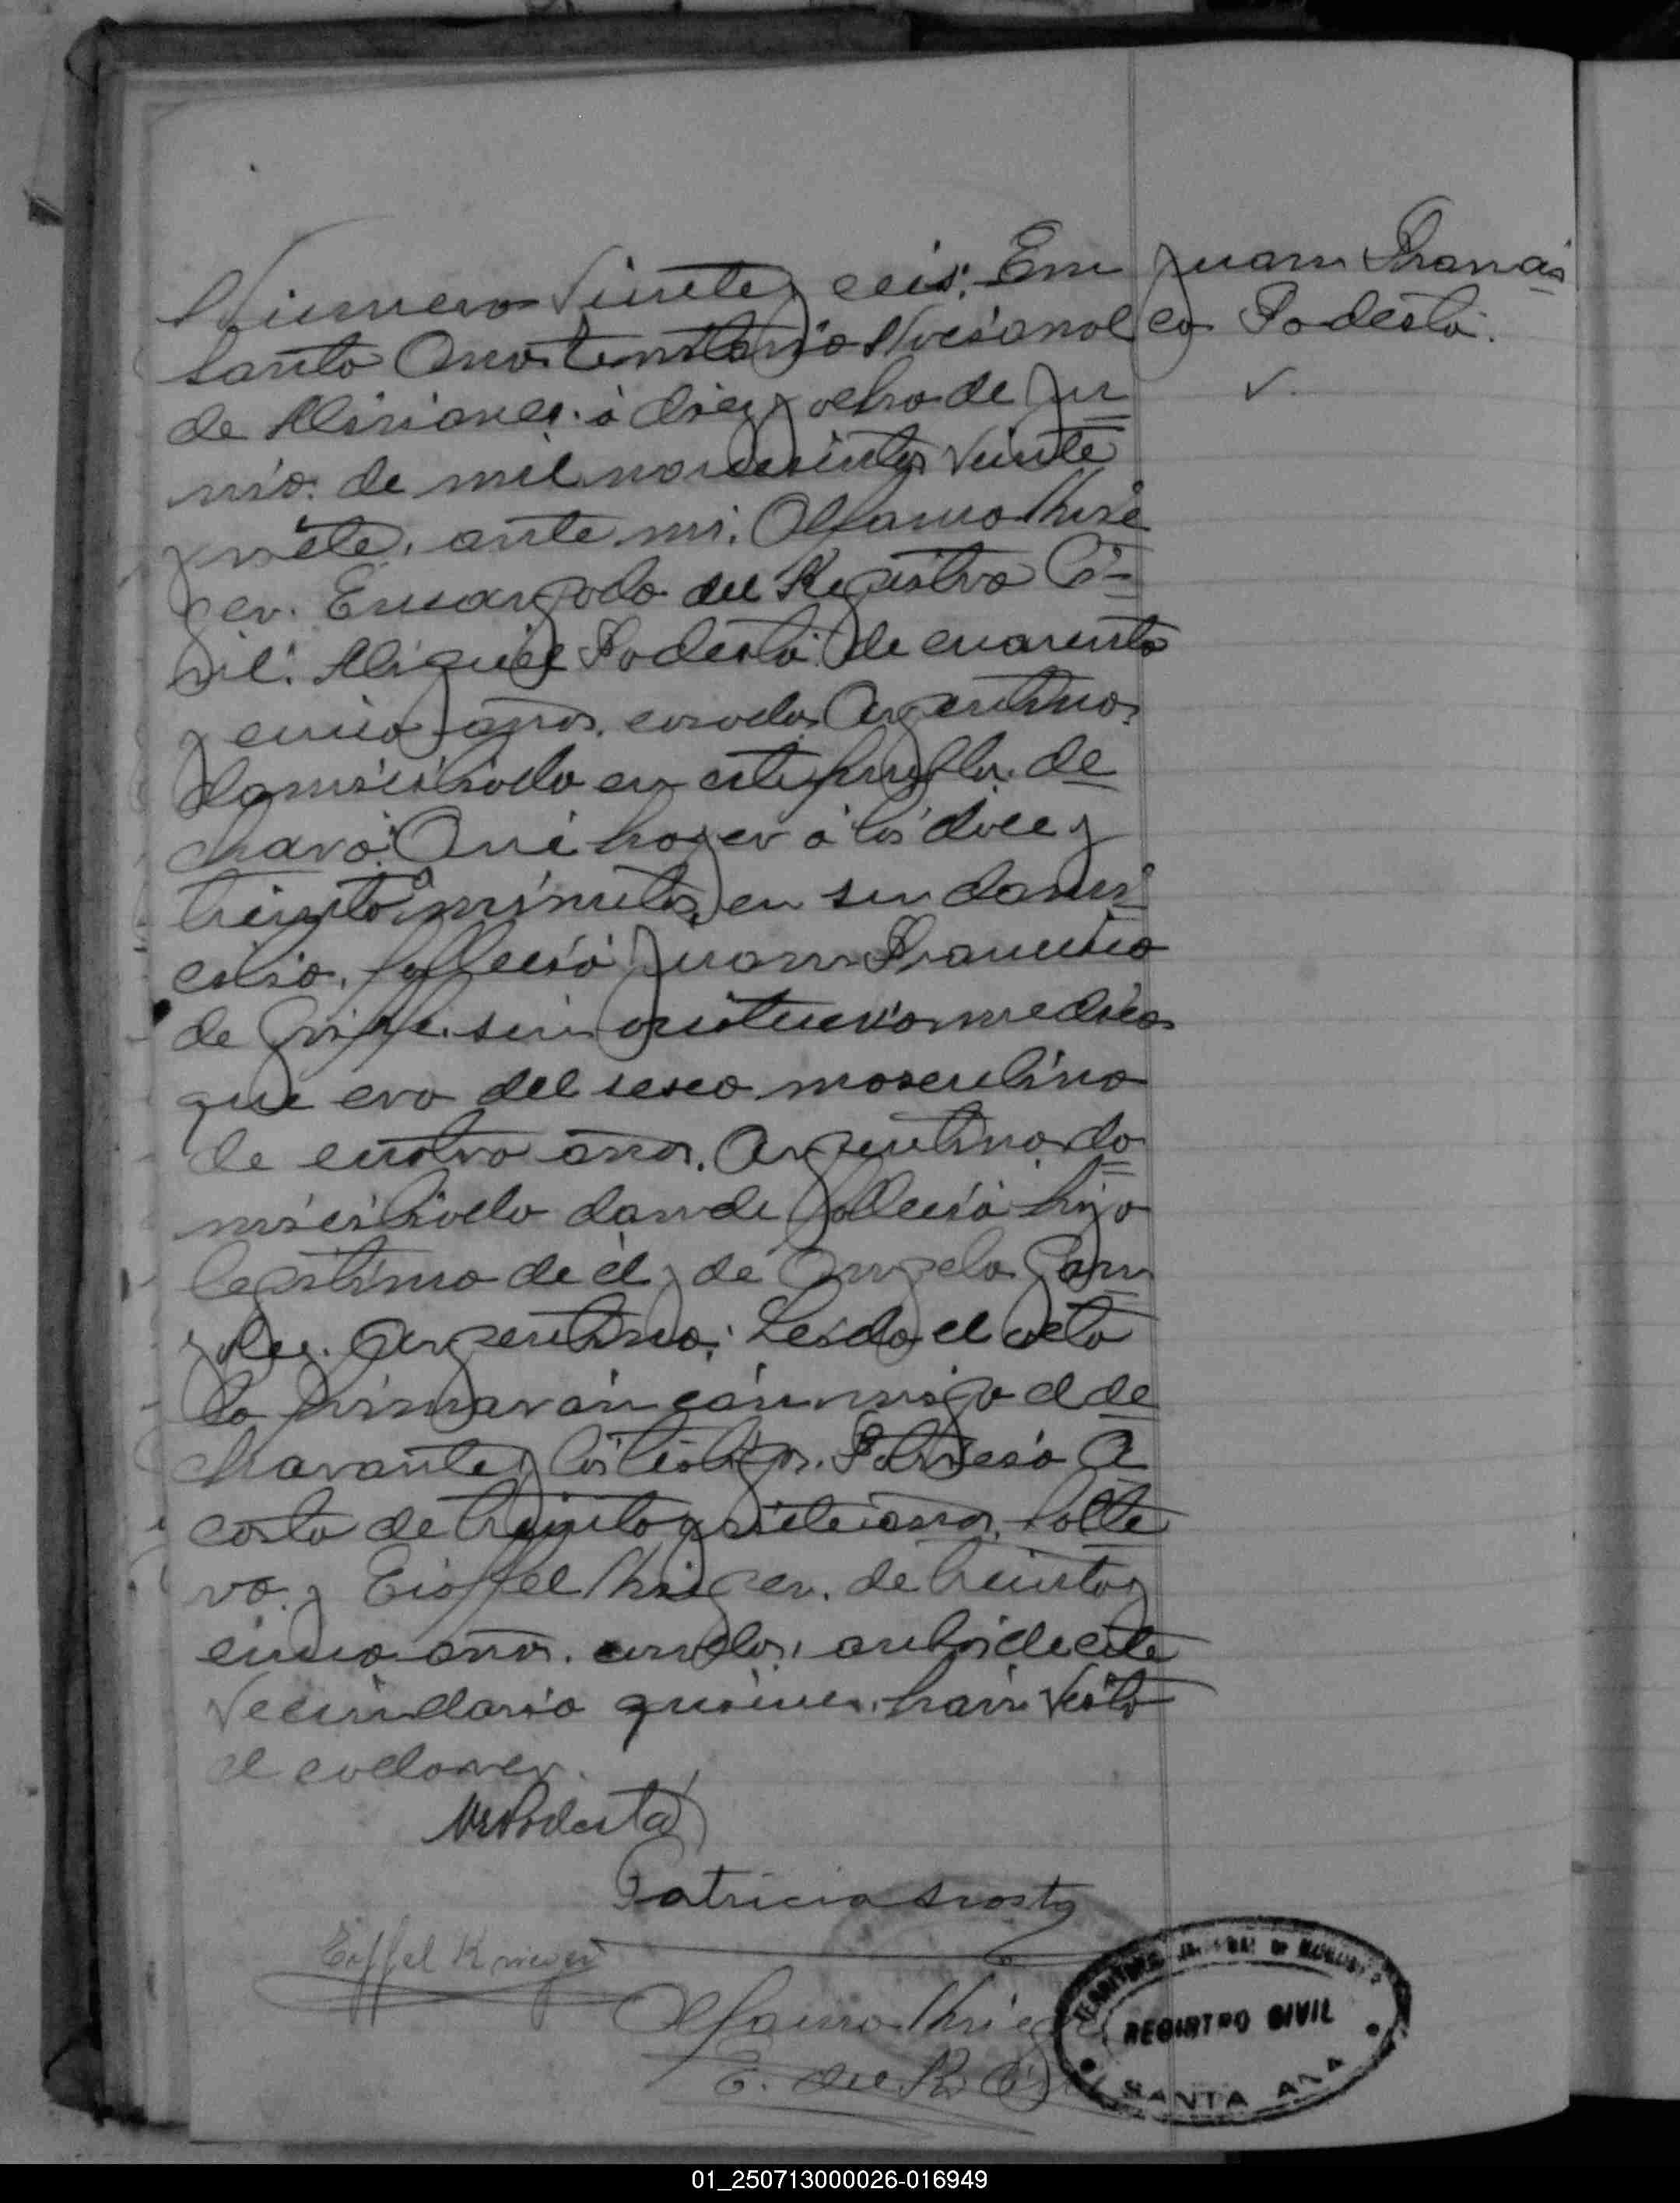 Numero Veinte y seis. En
Santa Ana territorio Nacional
de Misiones. á diez y ocho de Ju
nio. de mil novecientos Veinte
y siete. ante mi. Alfamo Krie
ger. Encargado del Registro Ci-
vil. Miguel Podestá de cuarenta
y cinco años. casado. Argentino.
domiciliado en este pueblo. de
claró: Que hoy er á las doce y
treinta minutos en su domi
cilio. falleció Juan Francisco
de Grippe. sin asistencia medica
que era del sexo masculino
de cuatro años. Argentino. do
miciliado donde falleció hijo
legitimo de él y de Angela Gon
zalez. Argentina. Leida el acta
la firmaron conmigo el de
clarante y los testigos. Patricio A
costa de treinta y siete años. solte
ro. y Eioffel Krieger. de treinta y
cinco años. casado. ambos de este
Vecindario quienes han Visto
el cadaver.
Juan Francis
co Podestá.
MPodestá
Patricio Acosta
Eiffel Krieger
Alfamo Krieger
E. del R. Civil
TERRITORIO NACIONAL DE MISIONES
REGISTRO CIVIL
SANTA ANA
01_250713000026-016949